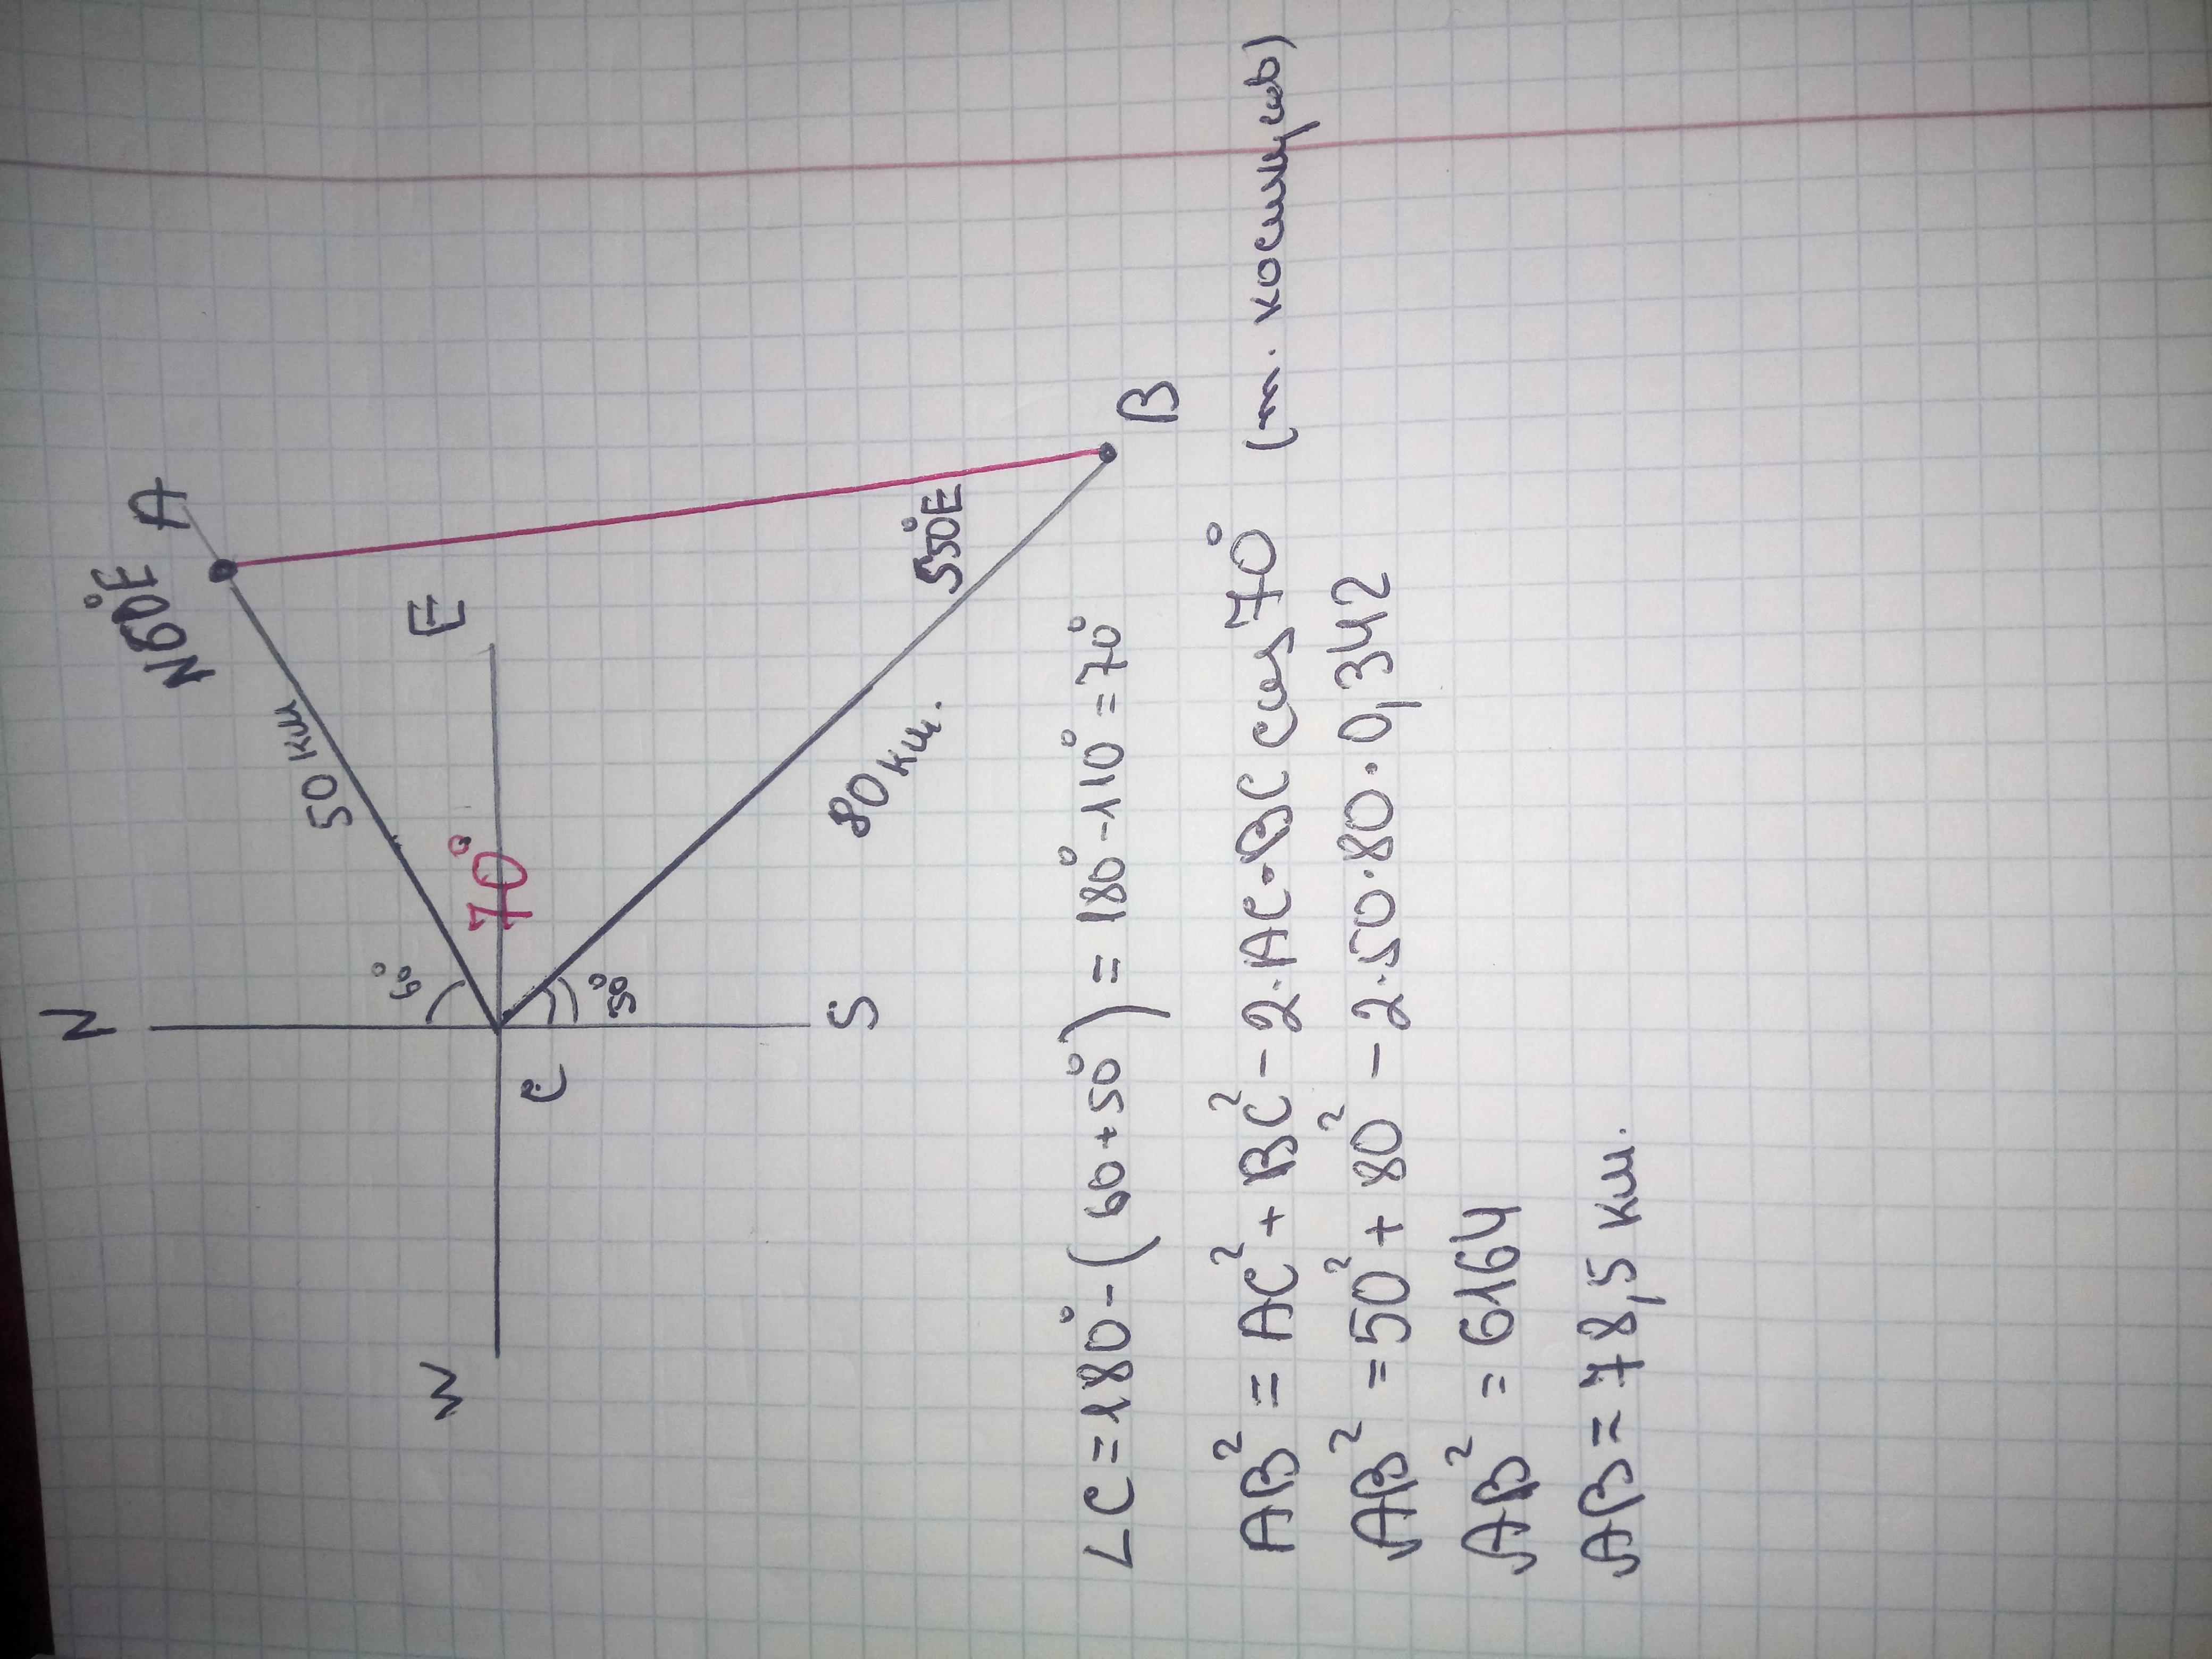 N
N60°E A
60°
50 км
W
E
70°
C
50°
S
80 км.
S50°E
B
∠C = 180° - (60 + 50°) = 180° - 110° = 70°
AB² = AC² + BC² - 2·AC·BC cos 70° (т. косинусів)
AB² = 50² + 80² - 2·50·80·0,342
AB² = 6164
AB = 78,5 км.